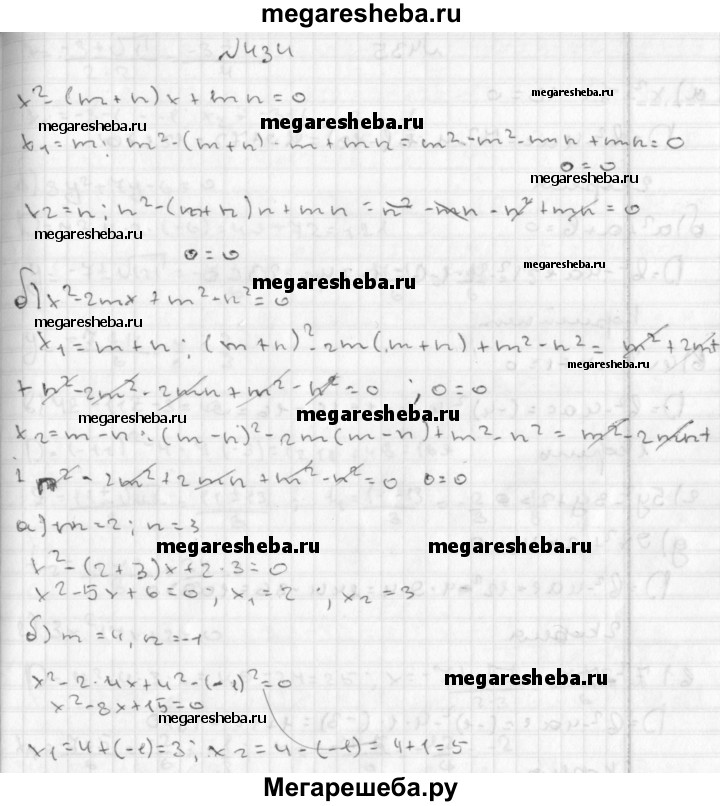 megaresheba.ru
№434
x²-(m+n)x+mn=0
megaresheba.ru megaresheba.ru
x₁=m; m²-(m+n)·m+mn=m²-m²-mn+mn=0
0=0
megaresheba.ru
x₂=n; n²-(m+n)n+mn=n²-mn-n²+mn=0
megaresheba.ru
0=0
megaresheba.ru megaresheba.ru
б) x²-2mx+m²-n²=0
megaresheba.ru
x₁=m+n; (m+n)²-2m(m+n)+m²-n²=m²+2mn+
megaresheba.ru
+n²-2m²-2mn+m²-n²=0; 0=0
megaresheba.ru megaresheba.ru
x₂=m-n: (m-n)²-2m(m-n)+m²-n²=m²-2mn+
n²-2m²+2mn+m²-n²=0 0=0
а) m=2; n=3
megaresheba.ru megaresheba.ru
x²-(2+3)x+2·3=0
x²-5x+6=0; x₁=2; x₂=3
б) m=4, n=-1
x²-2·4x+4²-(-1)²=0
megaresheba.ru
x²-8x+15=0
megaresheba.ru
x₁=4+(-1)=3; x₂=4-(-1)=4+1=5
Мегарешеба.ру